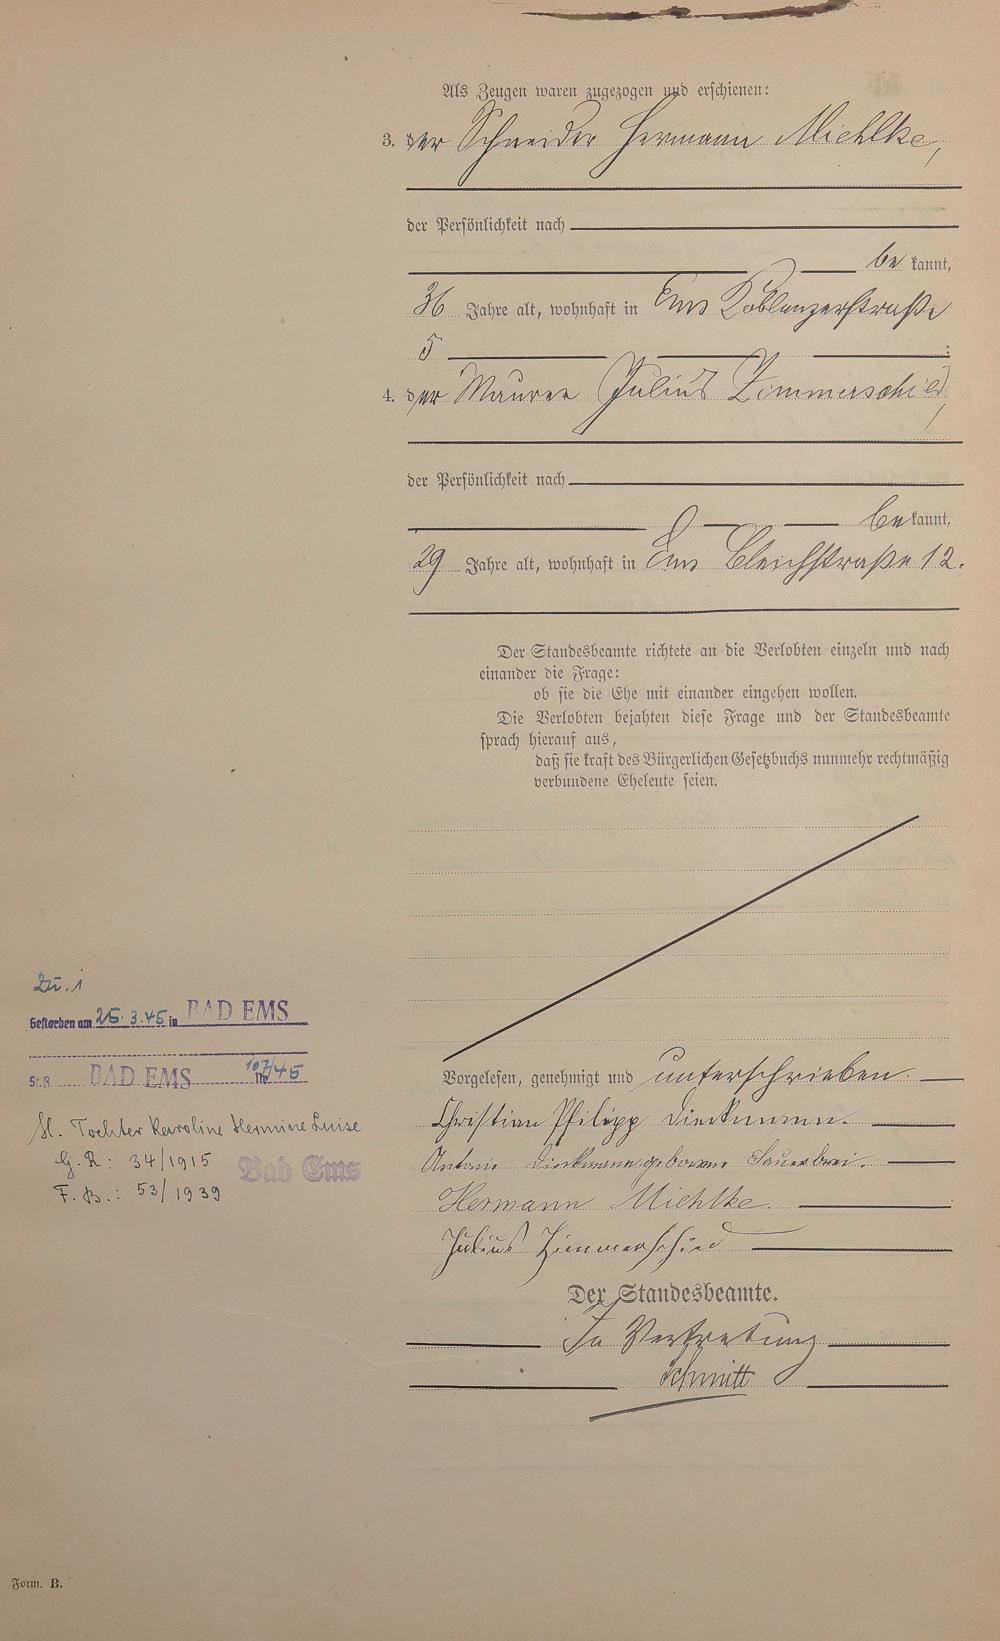 Als Zeugen waren zugezogen und erschienen:
3. der Schneider Hermann Miehlke,
der Persönlichkeit nach
be kannt,
36 Jahre alt, wohnhaft in Ems Coblenzerstraße
5 ;
4. der Maurer Julius Zimmerschied,
der Persönlichkeit nach
be kannt,
29 Jahre alt, wohnhaft in Ems Bleichstraße 12.
Der Standesbeamte richtete an die Verlobten einzeln und nach
einander die Frage:
ob sie die Ehe mit einander eingehen wollen.
Die Verlobten bejahten diese Frage und der Standesbeamte
sprach hierauf aus,
daß sie kraft des Bürgerlichen Gesetzbuchs nunmehr rechtmäßig
verbundene Eheleute seien.
Vorgelesen, genehmigt und unterschrieben.
Christian Philipp Dieckmann.
Antonie Dieckmann geborene Sauerbrei.
Hermann Miehlke.
Julius Zimmerschied
Der Standesbeamte.
In Vertretung
Schmitt
Zu. 1
Gestorben am 25.3.45 in BAD EMS
St. A. BAD EMS Nr. 107/45
H. Tochter Karoline Hermine Luise
G. R.: 34/1915 Bad Ems
F. B.: 53/1939
Form. B.